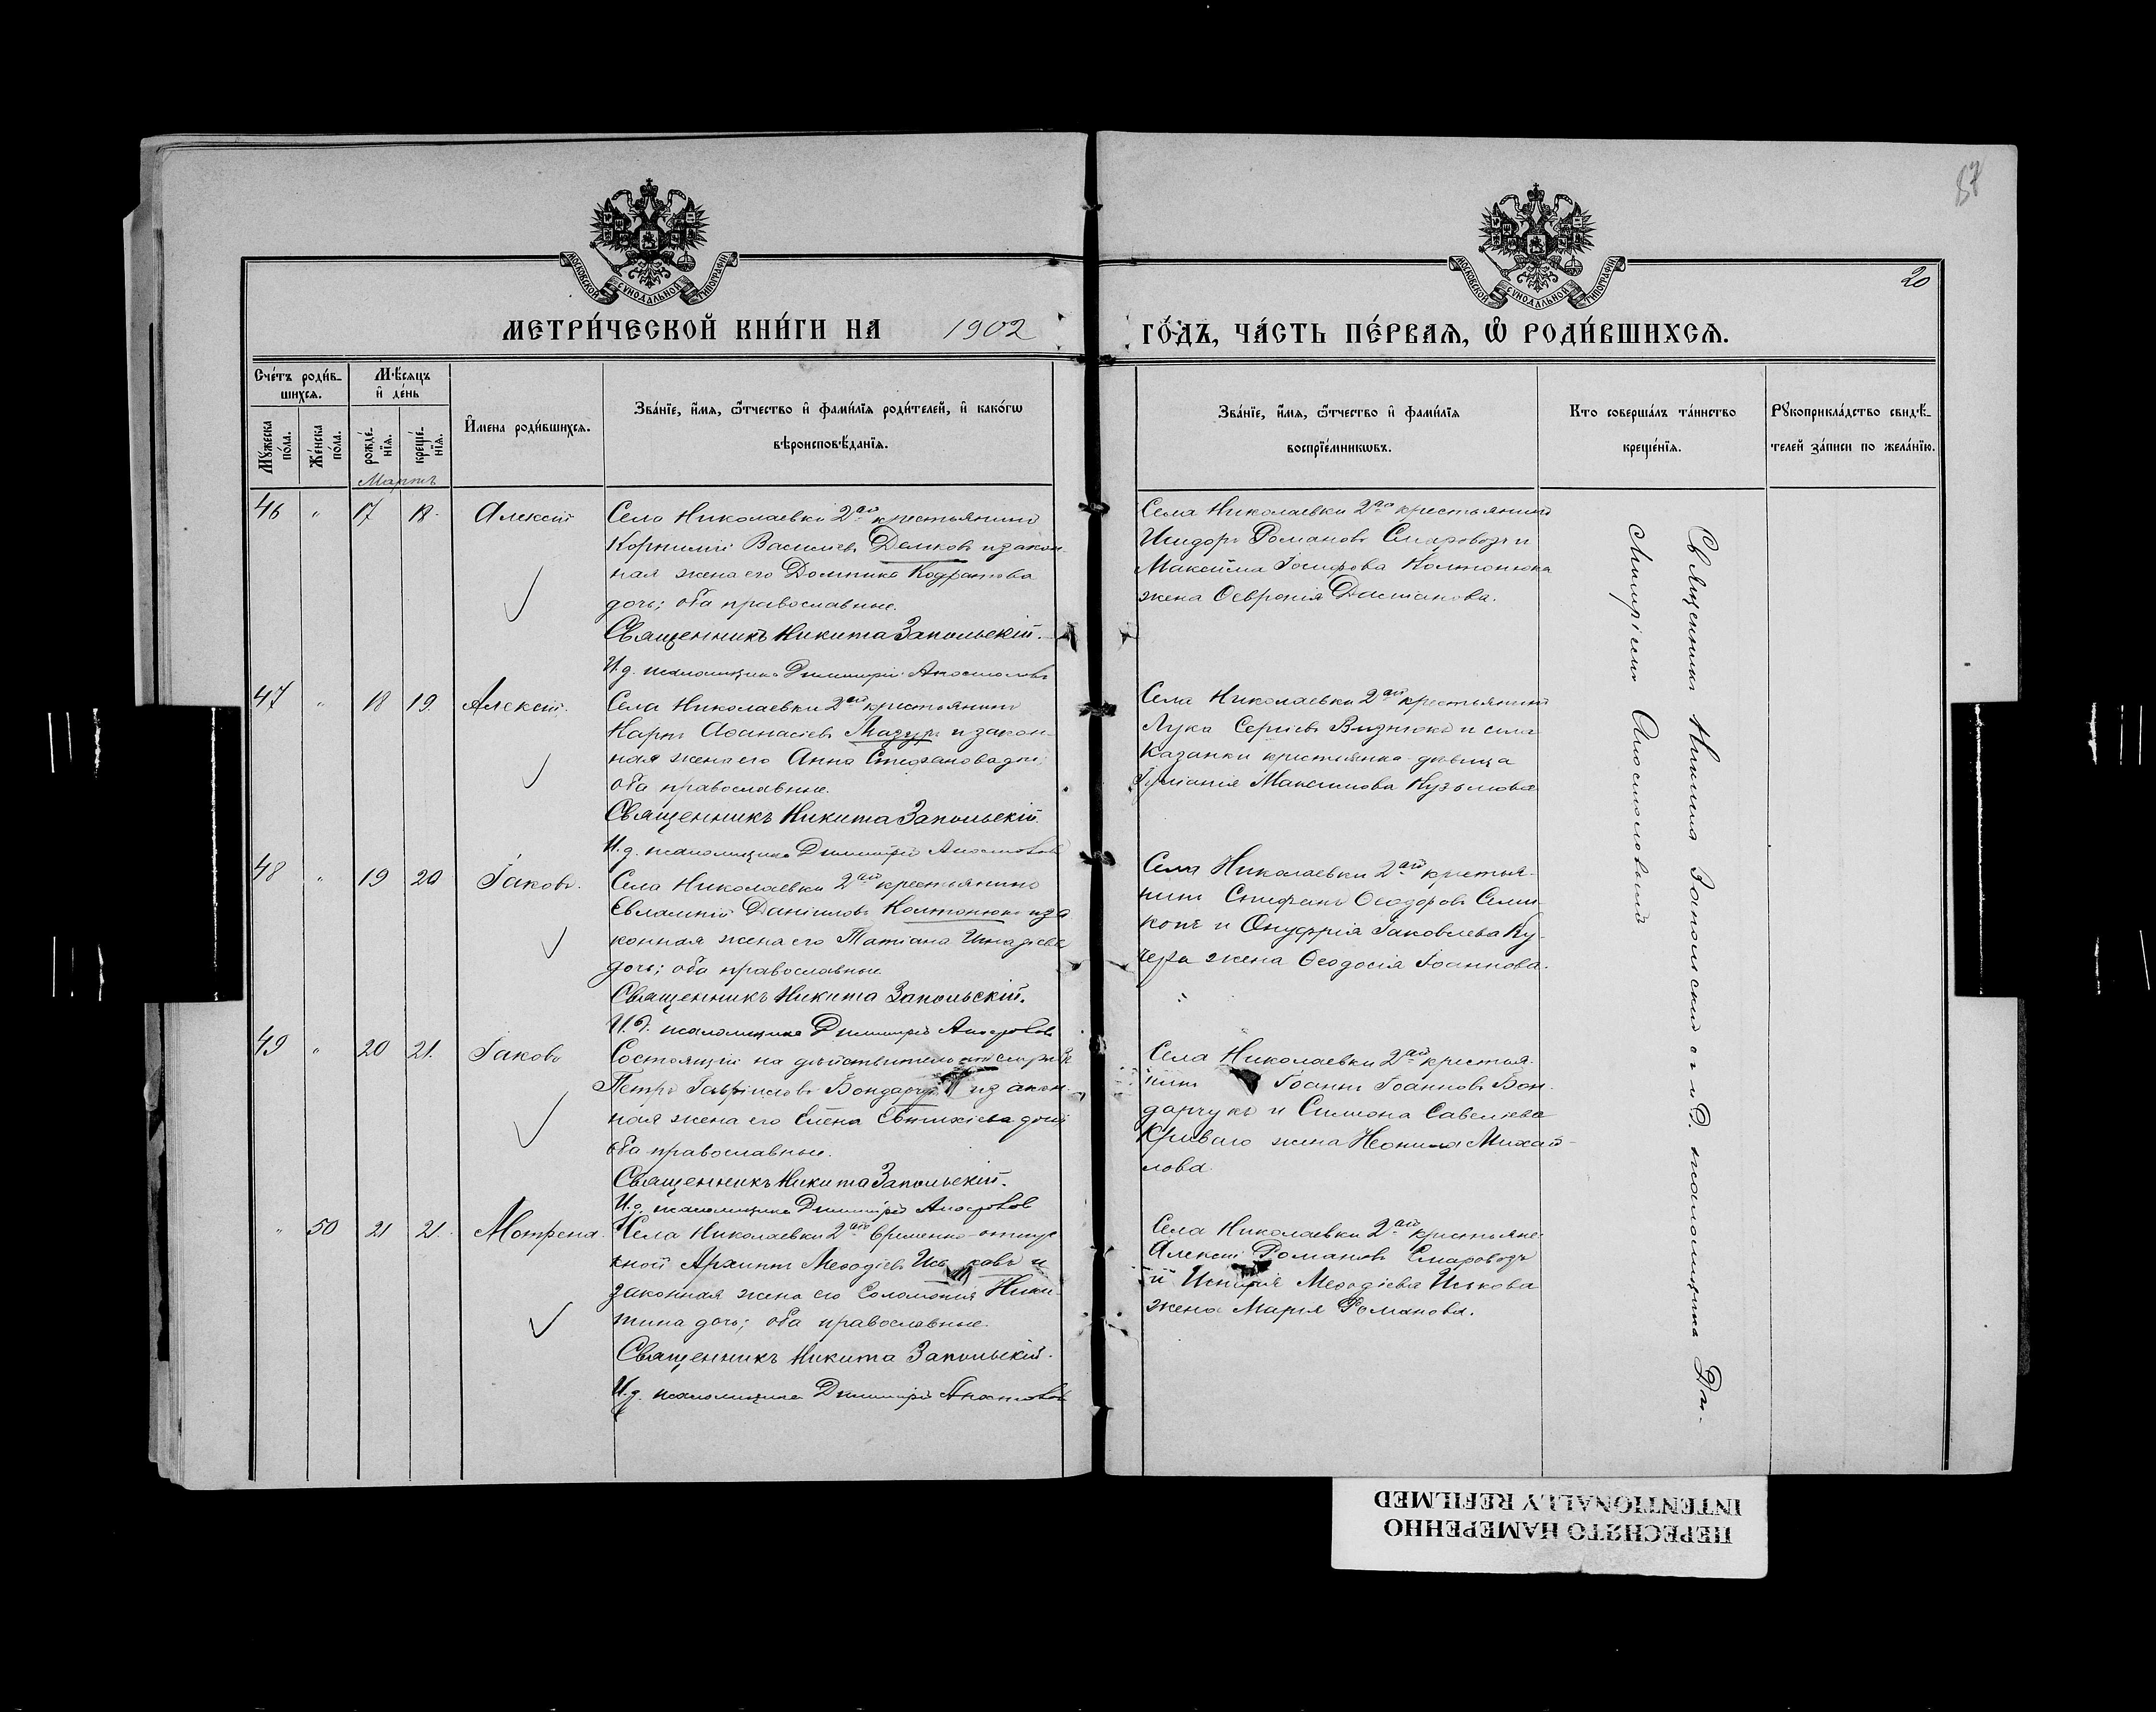 87
20
МОСКОВСКОЙ СУНОДАЛЬНОЙ ТИПОГРАФІИ
МОСКОВСКОЙ СУНОДАЛЬНОЙ ТИПОГРАФІИ
МЕТРИ́ЧЕСКОЙ КНИ́ГИ НА 1902
ГО́ДЪ, ЧА́СТЬ ПЕ́РВАѦ, Ѡ҆ РОДИ́ВШИХСѦ.
Сче́тъ роди́в-
шихсѧ.
Мꙋ́жеска по́ла.
Же́нска по́ла.
Мѣ́сѧцъ
и҆ де́нь
рожде́-
нїѧ.
креще́-
нїѧ.
И҆мена роди́вшихсѧ.
Зва́нїе, и҆́мѧ, ѻ҆́тчество и҆ фами́лїѧ роди́телей, и҆ како́гѡ
вѣроисповѣ́данїѧ.
Зва́нїе, и҆́мѧ, ѻ҆́тчество и҆ фами́лїѧ
воспрїе́мникѡвъ.
Кто соверша́лъ та́инство
креще́нїѧ.
Рꙋкоприкла́дство свидѣ́-
телей за́писи по жела́нїю.
Мартъ
46 " 17 18. Алексій
Села Николаевки 2ой крестьянинъ
Корнилій Василіевъ Демковъ и закон-
ная жена его Домника Кодратова
дочь; оба православные.
Священникъ Никита Запольскій.
И.д. псаломщика Димитрій Апостоловъ
Села Николаевки 2ой крестьянинъ
Исидоръ Романовъ Скаровозъ и
Максима Іосифова Колтонюка
жена Ѳеvронія
47 " 18 19. Алексій.
Села Николаевки 2ой крестьянинъ
Карпъ Аѳанасіевъ Мазуръ и закон-
ная жена его Анна Стефанова дочь;
оба православные.
Священникъ Никита Запольскій.
И.д. псаломщика Димитрій Апостоловъ
Села Николаевки 2ой крестьянинъ
Лука Сергіевъ Визнюкъ и села
Казанки крестьянка девица
Іуліанія Максимова Кузьмова
48 " 19 20 Іаковъ.
Села Николаевки 2ой крестьянинъ
Евлампій Даніиловъ Колтонюкъ и за
конная жена его Татіана
дочь; оба православные
Священникъ Никита Запольскій.
И.д. псаломщика Димитрій Апостоловъ
Села Николаевки 2ой крестья-
нинъ Стефанъ Ѳеодоровъ Семи-
копъ и Онуфрія Іаковлева Ку-
чера жена Ѳеодосія Іоаннова.
49 " 20 21. Іаковъ
Состоящій на действительной службе
Петръ Гавріиловъ Бондарчукъ и закон-
ная жена его Елена Евтихіева дочь
оба православные.
Священникъ Никита Запольскій.
И.д. псаломщика Димитрій Апостоловъ
Села Николаевки 2ой крестья-
нинъ Іоаннъ Іоанновъ Бон-
дарчукъ и Симеона Савеліева
Криваго жена Неонила Михай-
лова.
" 50 21 21. Мотрена.
Села Николаевки 2ой временно-отпус
кной Архипъ Меѳодіевъ Иськовъ и
законная жена его Соломонія Ники-
тина дочь; оба православные.
Священникъ Никита Запольскій.
И.д. псаломщика Димитрій Апостоловъ
Села Николаевки 2ой крестьяне
Алексій Романовъ Скаровозъ
и Меѳодіева Иськова
жена Марія Романова.
Священникъ Никита Запольскій съ и.д. псаломщика Ди-
митріемъ Апостоловымъ
ПЕРЕСНЯТО НАМЕРЕННО
INTENTIONALLY REFILMED